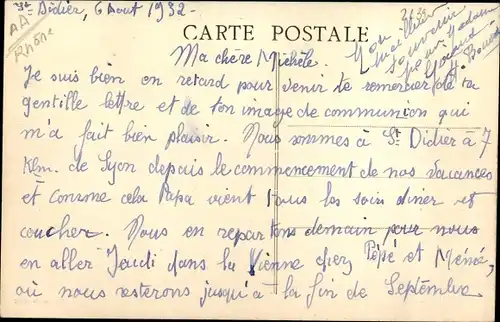 St Didier, 6 Aout 1932-
Rhône
CARTE POSTALE
Mon meilleur
souvenir
pour Madame
Ma chère Michèle.
Je suis bien en retard pour venir te remercier de ta
gentille lettre et de ton image de communion qui
m'a fait bien plaisir. Nous sommes à St Didier à 7
Klm. de Lyon depuis le commencement de nos vacances
et comme cela Papa vient tous les soirs diner et
coucher. Nous en repartons demain pour nous
en aller Jeudi dans la Vienne chez Pépé et Méné,
où nous resterons jusqu'à la fin de Septembre